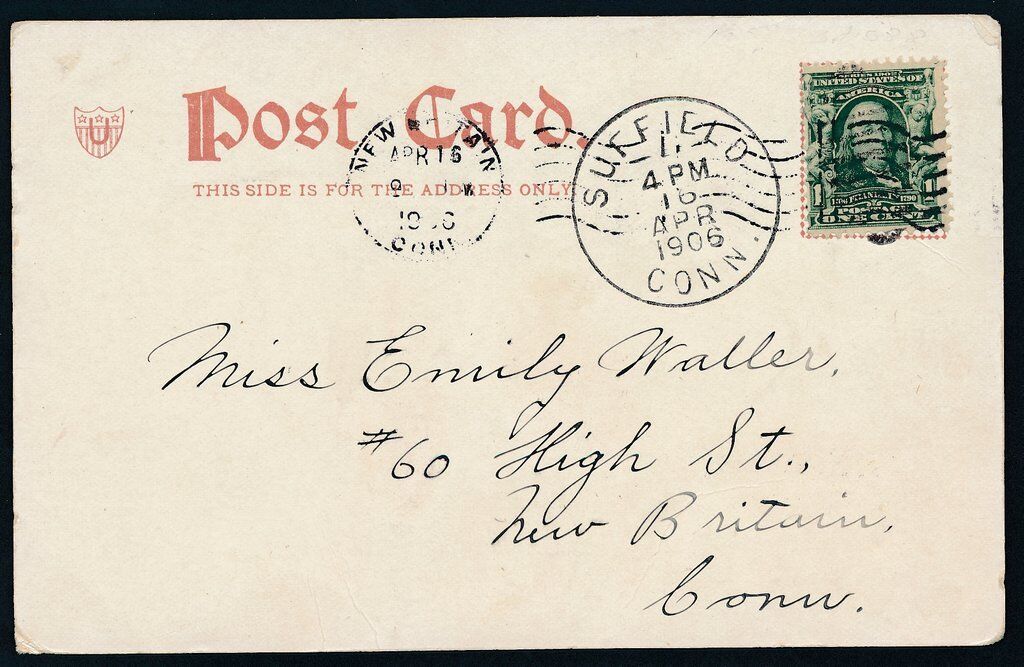 Post Card.
THIS SIDE IS FOR THE ADDRESS ONLY
U
NEW
APR 16
CONN
SUFFIELD
4 PM
16
APR
1906
CONN.
SERIES 1902
UNITED STATES OF
AMERICA
1 1
FRANKLIN
POSTAGE
ONE CENT
Miss Emily Waller,
#60 High St.,
New Britain,
Conn.